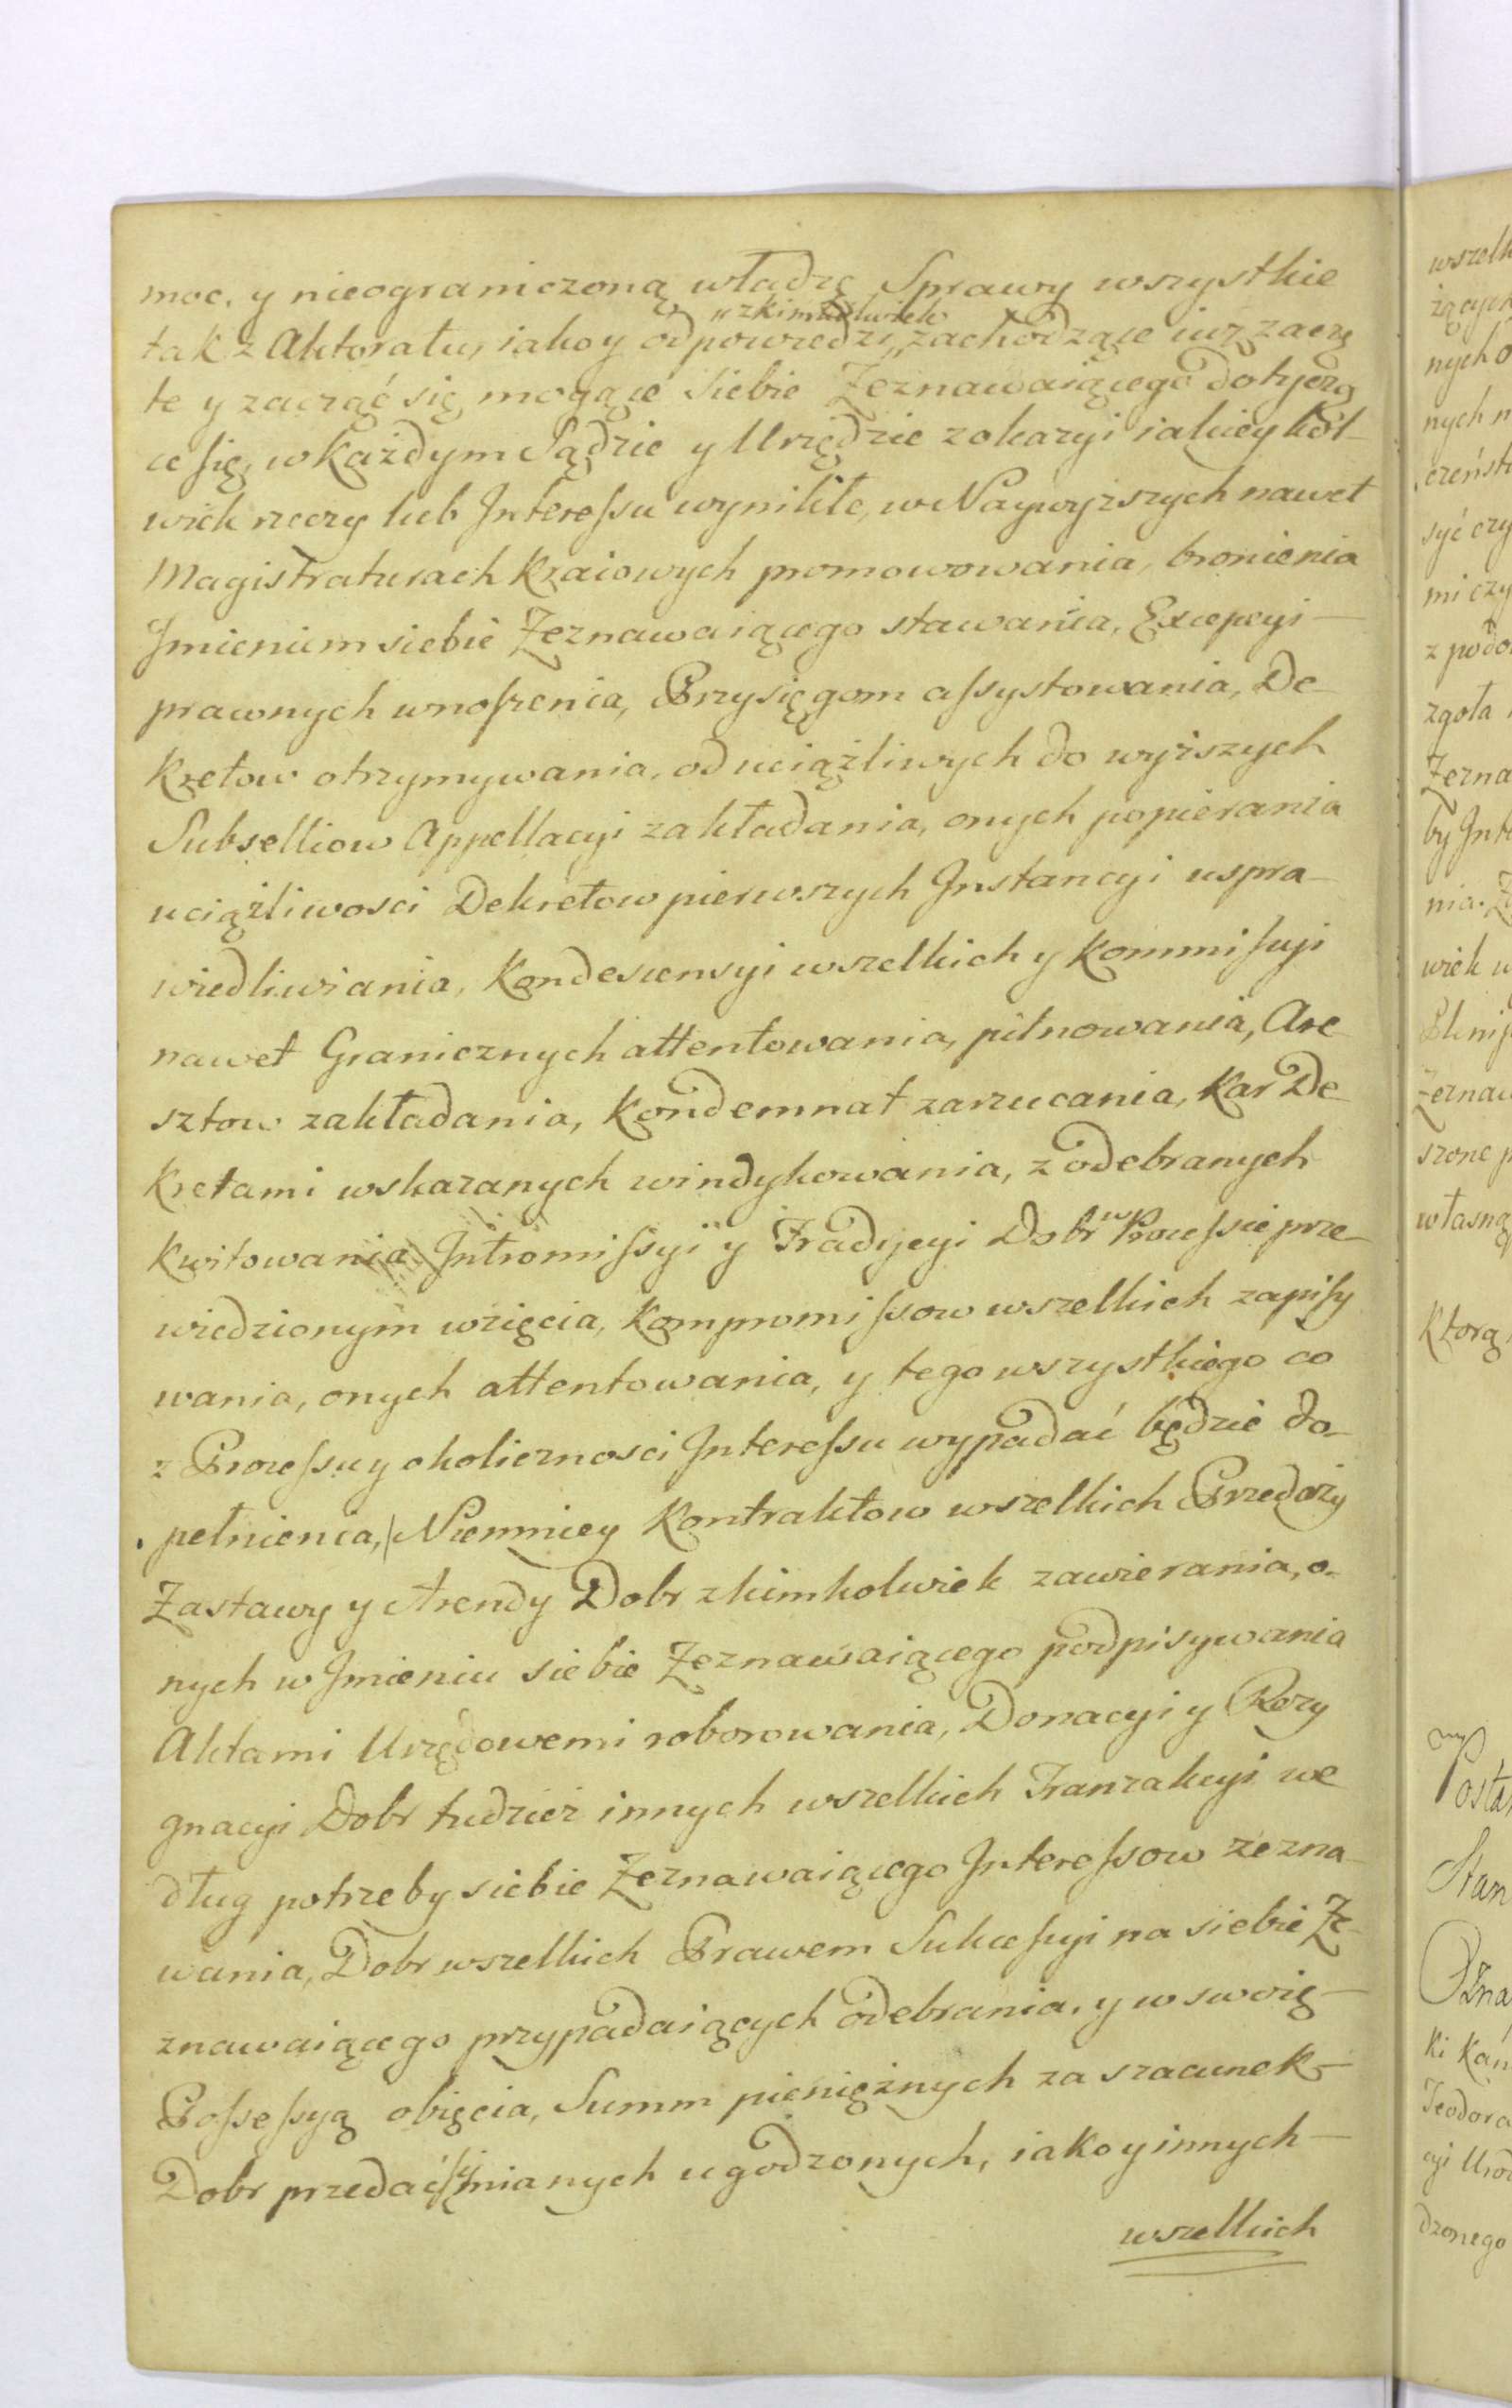 moc, y nieograniczoną władzę Sprawy wszystkie
tak z Aktoratu, iako y odpowiedzi „zkimkolwiek„ zachodzące iuż zaczę
te y zacząć się mogące siebie Zeznawaiącego dotycзą
ce się, w każdym Sądzie y Urzędzie z okazyi iakieykol-
wiek rzeczy lub Interessu wynikłe, w Naywyższych nawet
Magistraturach kraiowych promowowania, bronienia
Imieniem siebie Zeznawaiącego stawania, Excepcyi —
prawnych wnoszenia, Przysięgom assystowania, De-
kretow otrzymywania, od uciążliwych do wyższych
Subselliow Appellacyi zakładania, onych popierania
uciążliwosci Dekretow pierwszych Instancyi uspra-
wiedliwiania, Kondescensyi wszelkich y Kommissyi
nawet Granicznych attentowania, pilnowania, Are-
sztow zakładania, Kondemnat zarzucania, Kar De-
kretami wskazanych windykowania, z odebranych
kwitowania, Intromissyi y Tradycyi Dobr w Processie prze-
wiedzionym wzięcia, Kompromissow wszelkich zapisy
wania, onych attentowania, y tego wszystkiego co
z Processu y okolicznosci Interessu wypadać będzie do-
pełnienia, Niemniey Kontraktow wszelkich Przedaży
Zastawy y Arendy Dobr zkimkolwiek zawierania, o-
nych w Imieniu siebie Zeznawaiącego podpisywania
Aktami Urzędowemi roborowania, Donacyi y Rezy
gnacyi Dobr tudzież innych wszelkich Tranzakcyi we
dług potrzeby siebie Zeznawaiącego Interessow zezna-
wania, Dobr wszelkich Prawem Sukcessyi na siebie Ze-
znawaiącego przypadaiących odebrania, y w swoią —
Possessyą obięcia, Summ pieniężnych za szacunek —
Dobr przedać się mianych ugodzonych, iako y innych —
wszelkich
wszelk
nych o
nych n
syć czy
mi czy
zgoła
Zezna
by Int
nia.
wiek w
Zeznaw
szone p
własną
Ktorą
Postan
Stan
ki Kan
Teodora
cyi Urod
dzonego